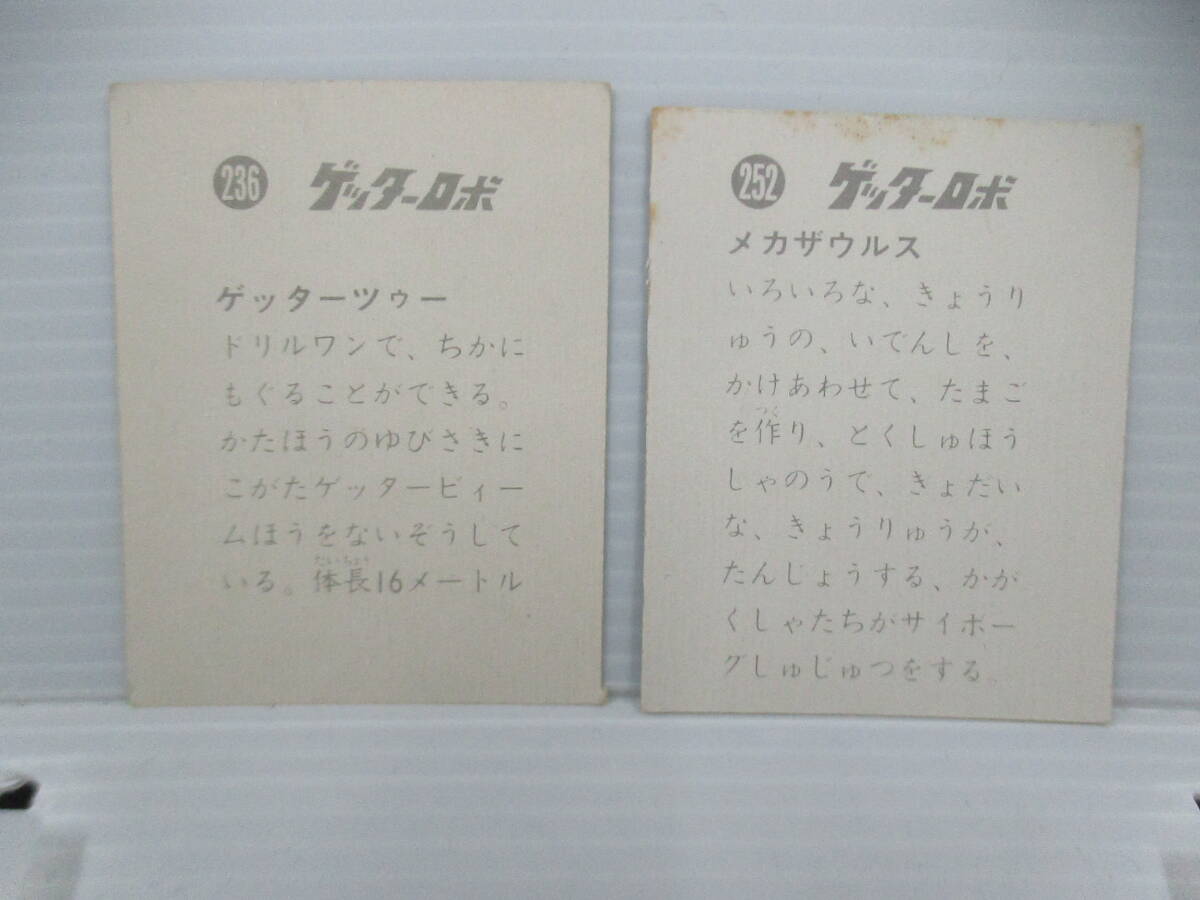 236 ゲッターロボ
ゲッターツゥー
ドリルワンで、ちかに
もぐることができる。
かたほうのゆびさきに
こがたゲッタービィー
ムほうをないぞうして
たいちょう
いる。体長16メートル
252 ゲッターロボ
メカザウルス
いろいろな、きょうり
ゅうの、いでんしを、
かけあわせて、たまご
つく
を作り、とくしゅほう
しゃのうで、きょだい
な、きょうりゅうが、
たんじょうする、かが
くしゃたちがサイボー
グしゅじゅつをする